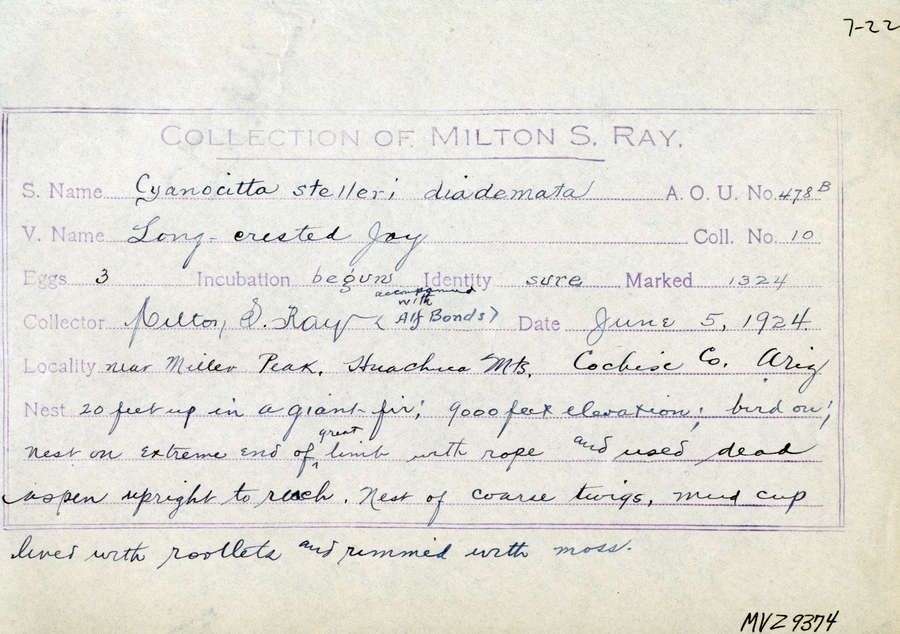 7-22
COLLECTION OF MILTON S. RAY.
S. Name Cyanocitta stelleri diademata A. O. U. No. 478 B
V. Name Long-crested Jay Coll. No. 10
Eggs 3 Incubation begun Identity sure Marked 1324
accompanied
with
Collector Milton S. Ray ( Alf Bonds) Date June 5, 1924
Locality near Miller Peak, Huachuca Mts. Cochise Co. Ariz
Nest 20 feet up in a giant fir; 9000 feet elevation; bird on;
nest on extreme end of great limb with rope and used dead
aspen upright to reach. Nest of coarse twigs, mud cup
lined with rootlets and rimmed with moss.
MVZ 9374